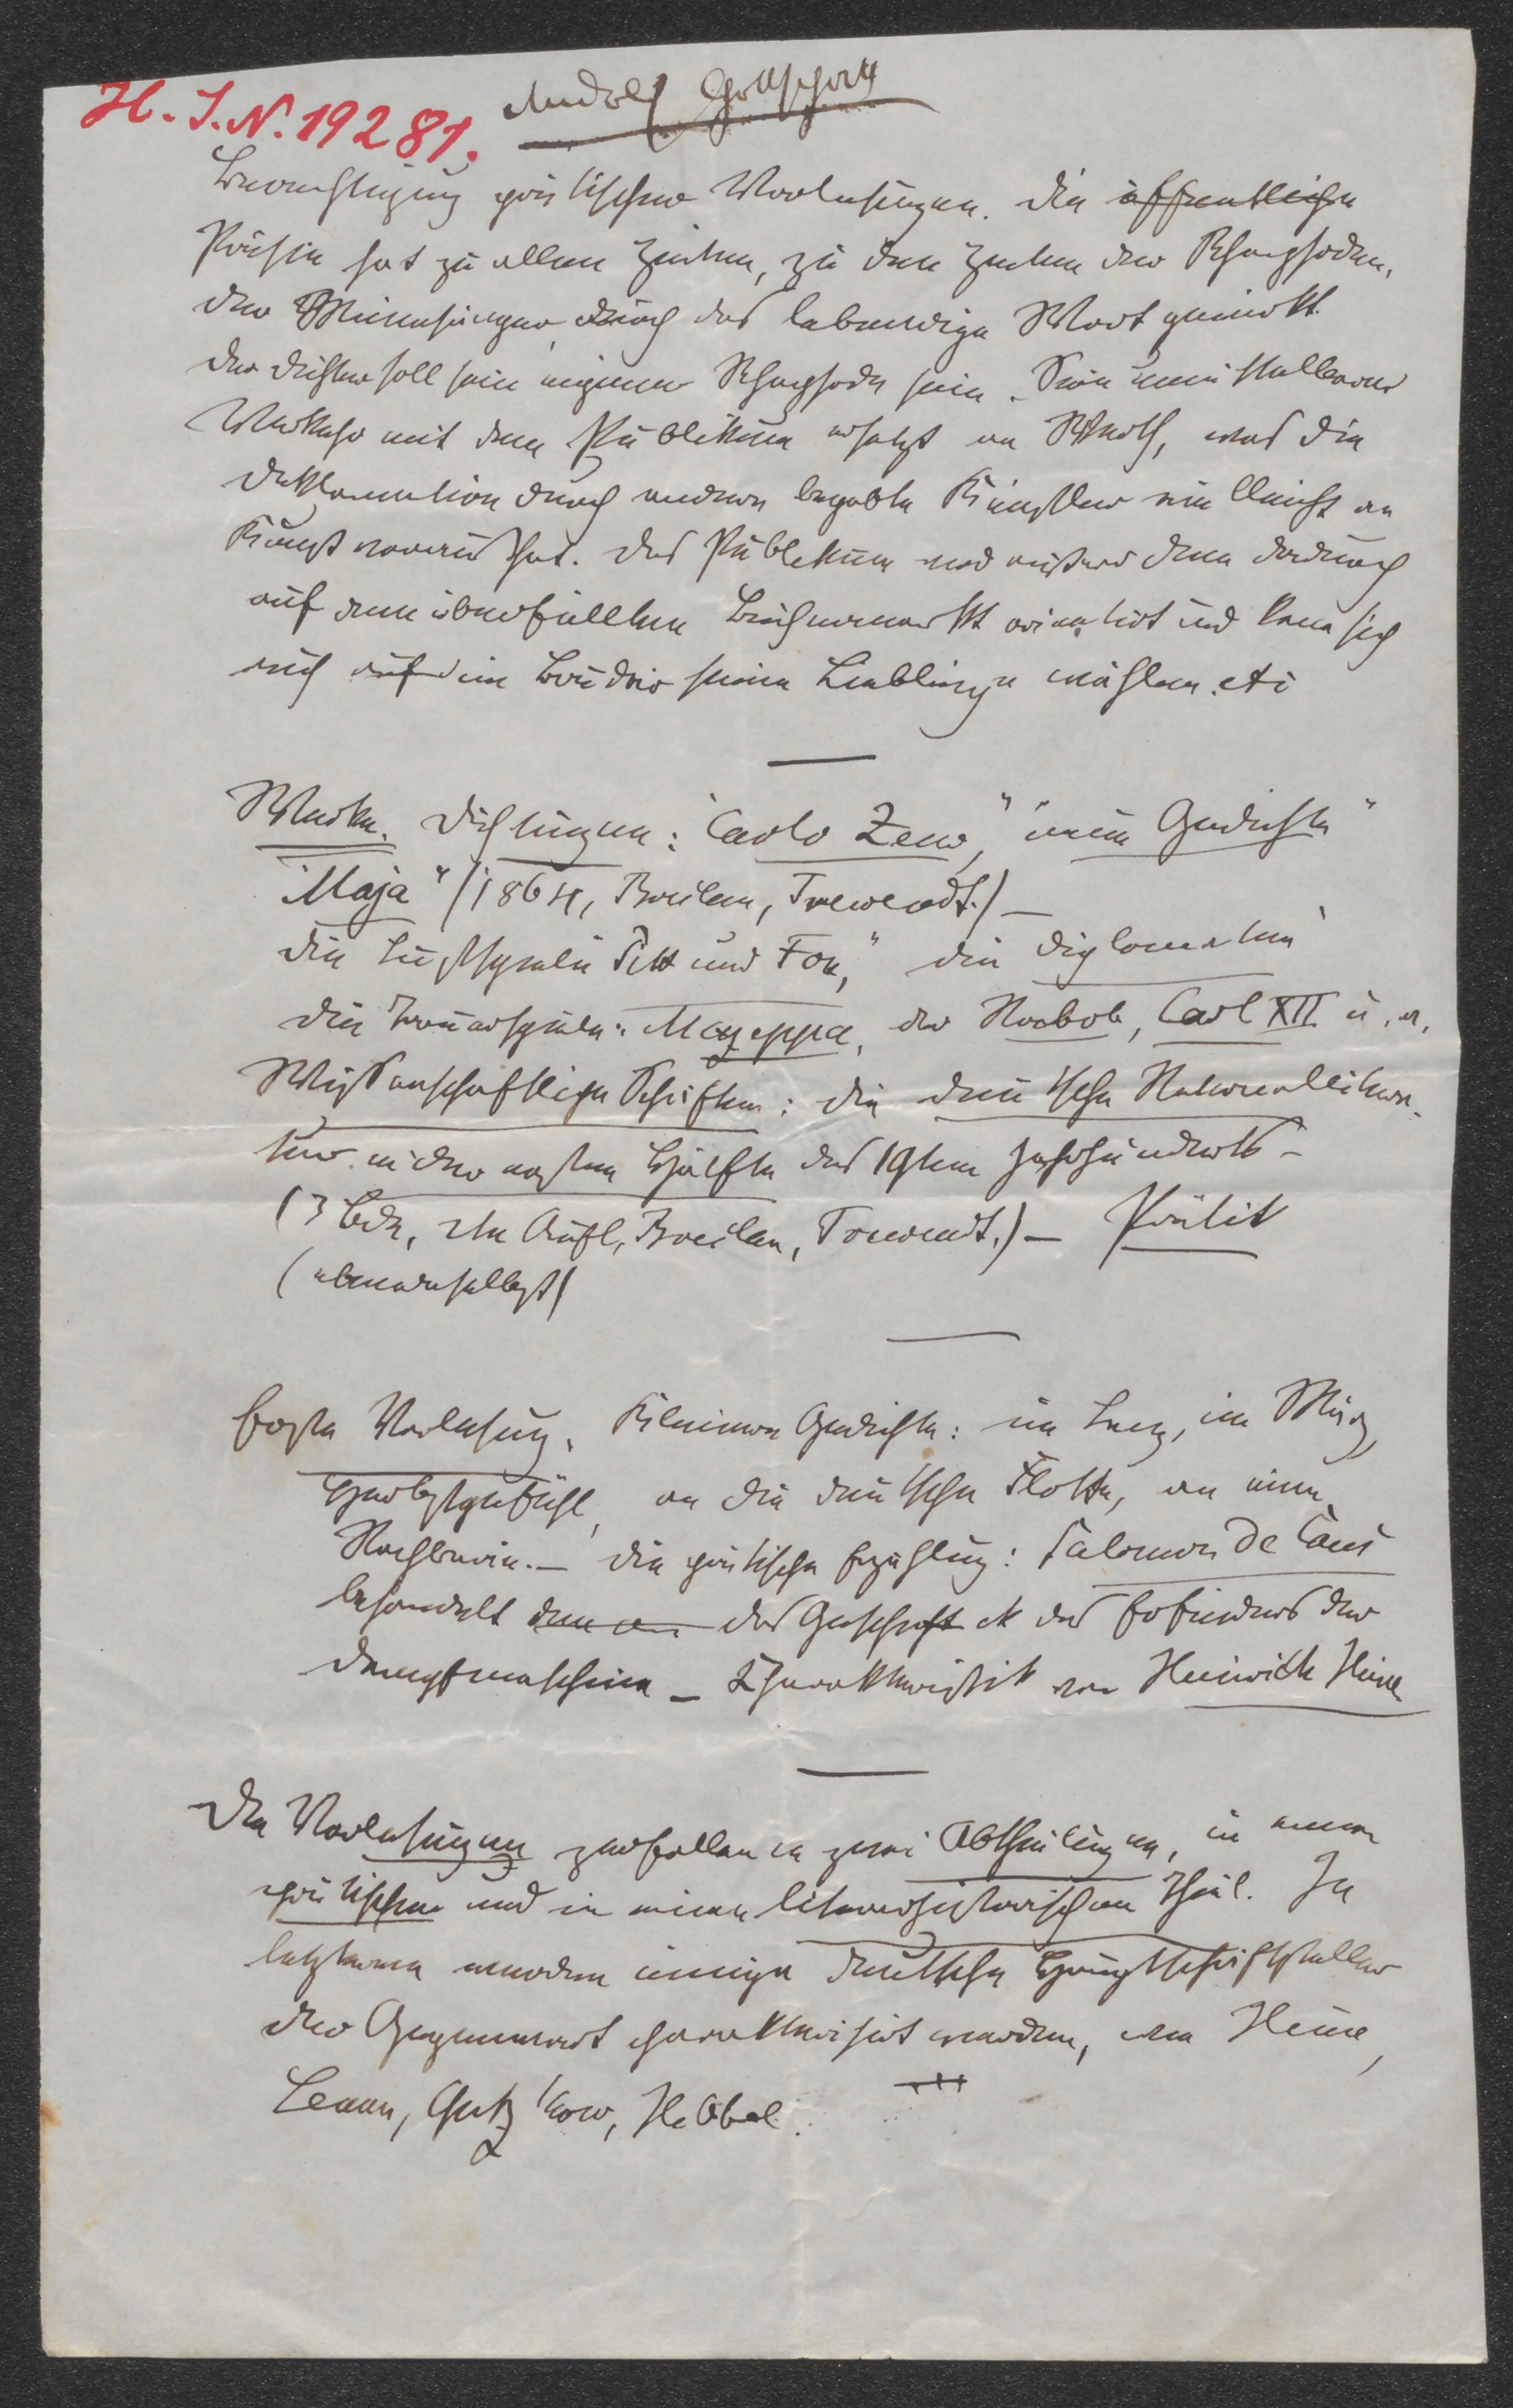 H. I. N. 19281.
Rudolf Gottschall
Berechtigung poetischer Vorlesungen. Die öffentliche
Poesie hat zu allen Zeiten, zu den Zeiten der Rhapsoden,
der Minnesänger durch das lebendige Wort gewirkt.
Der Dichter soll sein eigener Rhapsode sein. Sein unmittelbarer
Verkehr mit dem Publikum ersetzt an Werth, was die
Deklamation durch andere begabte Künstler vielleicht an
Kunst voraus hat. Das Publikum wird außerdem dadurch
auf dem überfüllten Büchermarkt orientirt und kann sich
auch seine Lieblinge wählen. etc
Werke. Dichtungen: "Carlo Zeno", "neue Gedichte"
"Maja" (1864, Breslau, Trewendt.) —
die Lustspiele "Pitt und Fox," die Diplomaten
die Trauerspiele: Mazeppa, der Nabob, Carl XII u. a.
Wissenschaftliche Schriften: die deutsche Nationallitera-
tur in der ersten Hälfte des 19ten Jahrhunderts —
(3 Bde, 2te Aufl, Breslau, Trewendt.) — Poetik
(ebendaselbst)
Erste Vorlesung. Kleinere Gedichte: im Lenz, im März,
Herbstgefühl, an die deutsche Flotte, an eine
Nachbarin. — Die poetische Erzählung: Salomon de Caus
behandelt das Geschick des Erfinders der
Dampfmaschine — Charakteristik von Heinrich Heine
Die Vorlesungen zerfallen in zwei Abtheilungen, in einen
poetischen und in einen literarhistorischen Theil. In
letzterem werden einige deutsche Hauptschriftsteller
der Gegenwart charakterisirt werden, wie Heine,
Lenau, Gutzkow, Hebbel.